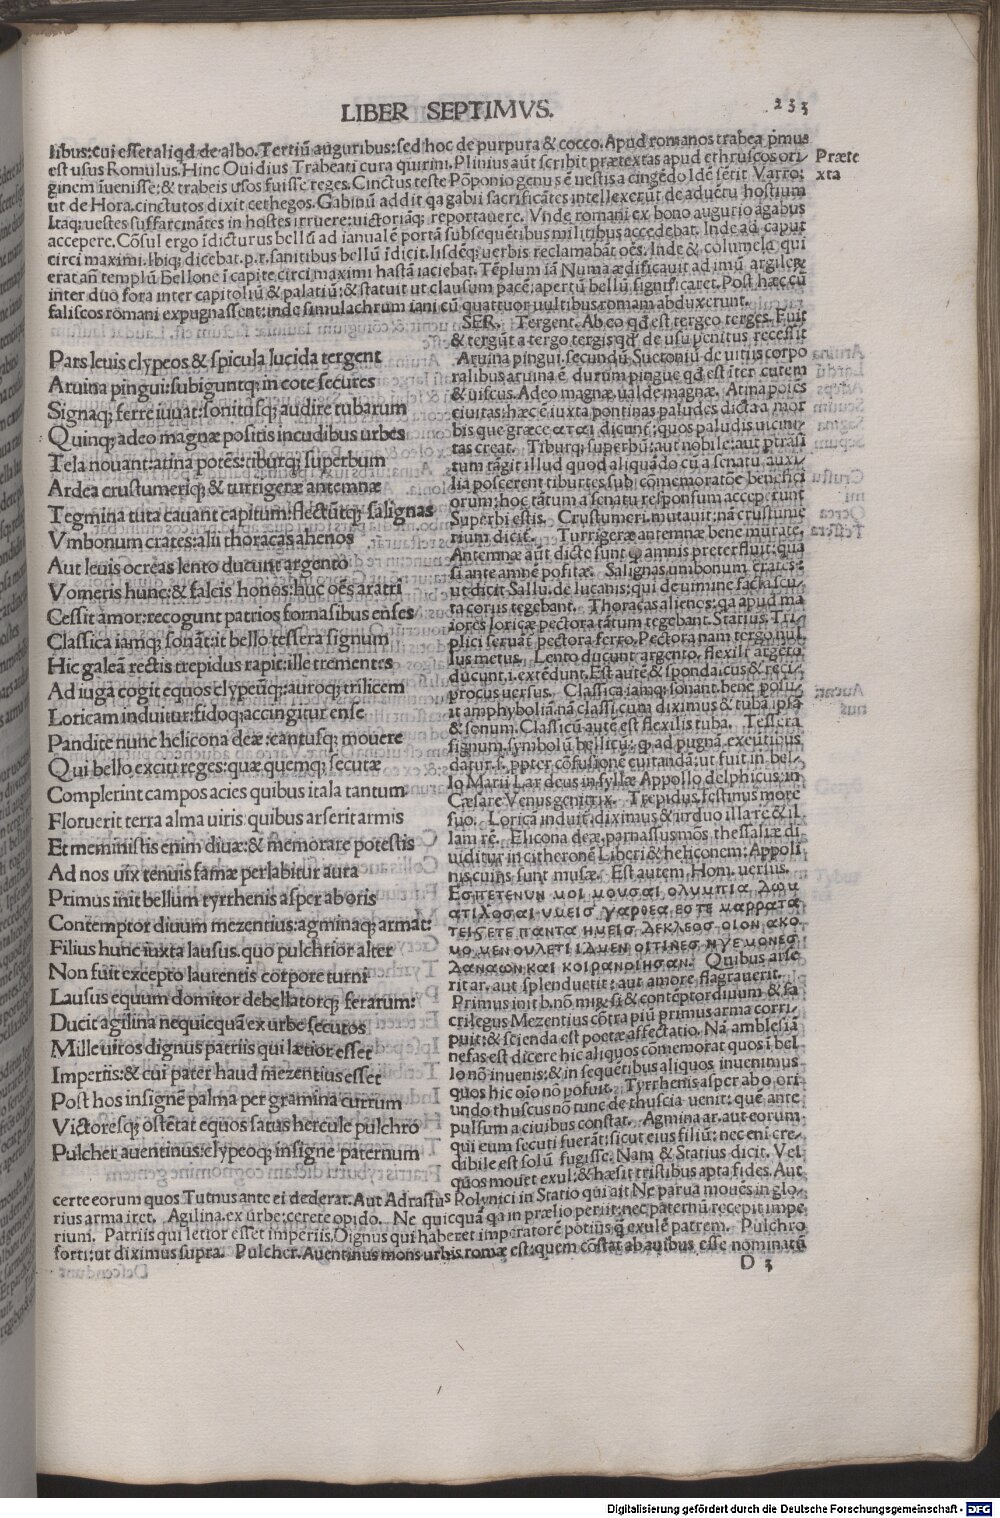 LIBER SEPTIMVS.
233
libus: cui esset aliqd de albo. Tertiũ auguribus: sed hoc de purpura & cocco. Apud romanos trabea p̃mus
est usus Romulus. Hinc Ouidius Trabeati cura quirini. Plinius aũt scribit prætextas apud ethruscos ori-
Præte
ginem iuenisse: & trabeis usos fuisse reges. Cinctus teste Põponio genus ẽ uestis a cingẽdo
xta
ut de Hora. cinctutos dixit cethegos. Gabinũ addit qa gabii sacrificãtes intellexerũt de aduẽtu hostium
Itaq; uestes suffarcinãtes in hostes irruere: uictoriãq; reportauere. Vnde romani ex bono augurio agabus
accepere. Cõsul ergo ĩdicturus bellũ ad ianualẽ portã subsequẽtibus militibus accedebat. Inde ad caput
circi maximi. Ibiq; dicebat. p.r. sanitibus bellũ ĩdicit. Iisdẽq; uerbis reclamabãt oẽs. Inde & columela qui
erat añ templũ bellone ĩ capite circi maximi hastã iaciebat. Tẽplum iã Numa ædificauit ad imũ argiletũ
inter duo fora inter capitoliũ & palatiũ: & statuit ut clausum pacẽ: apertũ bellũ significaret. Post hæc cũ
faliscos romani expugnassent: inde simulachrum iani cũ quattuor uultibus romam abduxerunt.
Pars leuis clypeos & spicula lucida tergent
Aruina pingui: subiguntq; in cote secures
Signaq; ferre iuuat: sonitusq; audire tubarum
Quinq; adeo magnæ positis incudibus urbes
Tela nouant: atina potẽs: tiburq; superbum
Ardea crustumeriq; & turrigeræ antemnæ
Tegmina tuta cauant capitum: flectũtq; salignas
Vmbonum crates: alii thoracas ahenos
Aut leuis ocreas lento ducunt argento
Vomeris hunc: & falcis honos: huc oẽs aratri
Cessit amor: recogunt patrios fornasibus enses
Classica iamq; sonãt: it bello tessera signum
Hic galeã rectis trepidus rapit: ille trementes
Ad iuga cogit equos clypeũq; auroq; trilicem
Loricam induitur: fidoq; accingitur ense
Pandite nunc helicona deæ: cantusq; mouere
Qui bello exciti reges: quæ quemq; secutæ
Complerint campos acies quibus itala tantum
Floruerit terra alma uiris: quibus arserit armis
Et meministis enim diuæ: & memorare potestis
Ad nos uix tenuis famæ perlabitur aura
Primus init bellum tyrrhenis asper ab oris
Contemptor diuum mezentius: agminaq; armat:
Filius hunc iuxta lausus. quo pulchrior alter
Non fuit excepto laurentis corpore turni
Lausus equum domitor debellatorq; ferarum:
Ducit agilina nequicquã ex urbe secutos
Mille uiros dignus patriis qui lætior esset
Imperiis: & cui pater haud mezentius esset
Post hos insignẽ palma per gramina currum
Victoresq; ostẽtat equos satus hercule pulchro
Pulcher auentinus: clypeoq; insigne paternum
SER. Tergent. Ab eo qd est tergeo terges. Fuit
& tergũt a tergo tergis qd de usu penitus recessit
Aruina pingui. secundũ Suetoniũ de uitiis corpo
ralibus aruina ẽ durum pingue qd est iter cutem
& uiscus. Adeo magnæ. ualde magnæ. Atina potẽs
ciuitas: hæc ẽ iuxta pontinas paludes dicta a mor
bis que græce αται dicunt: quos paludis uicini-
tas creat. Tiburq; superbũ: aut nobile: aut p̃trãsi
tum tãgit illud quod aliquãdo cũ a senatu auxi-
lia poscerent tiburtes sub cõmemoratõe beneficii
orum: hoc tãtum a senatu responsum acceperunt
Superbi estis. Crustumeri. mutauit: nã crustume
rium dicit. Turrigeræ antemnæ bene murate.
Antemnæ aũt dicte sunt q amnis preterfluit: qua
si ante amnẽ positæ. Salignas umbonum crates:
ut dicit Sallu. de lucanis: qui de uimine facta scu-
ta coriis tegebant. Thoracas aliencs: qa apud ma
iores loricæ pectora tãtum tegebant. Statius. Tri
plici seruãt pectora ferro. Pectora nam tergo nul
lus metus. Lento ducunt argento. flexili argẽto
ducunt. i. extẽdunt. Est autẽ & spondaicus & reci-
procus uersus. Classica iamq; sonant. bene posu-
it amphyboliã. nã classicum diximus & tubã ipsã
& sonum. Classicũ autẽ est flexilis tuba. Tessera
signum. symbolũ bellicũ: qd ad pugnã exeuntibus
datur. s. ppter cõfusionẽ euitandã: ut fuit in bel-
lo Marii Lar deus in syllæ Appollo delphicus: in
Cæsare Venus genitrix. Trepidus. festinus more
suo. Loricã induit. diximus & ĩduo illã re & il
lam rẽ. Elicona deæ. parnassus mõs thessaliæ di
uiditur in citheronẽ Liberi & heliconem: Appoll
nis, cuius sunt musæ. Est autem Hom. uersus.
Εσπετενυν μοι μουσαι ολυμπια δωμ
ατιχοσαι υμεισ γαρθεα εστε μαρρατα
τεισετε παντα ημεισ δεκλεοσ οιον ακο
υο μενουλετι ιδμεν οιτινεσ ηγεμονεσ
δαναων και κοιρανοιησαν. Quibus arse
rit ar. aut splenduerit: aut amore flagrauerit.
Primus init b. nõ & contẽptor diuum & sa
crilegus Mezentius cõtra piũ primus arma corri-
puit: & scienda est poetæ affectatio. Nã amblesiã
nefas est dicere hic aliquos cõmemorat quos ĩ bel
lo nõ inuenis: & in sequẽtibus aliquos inuenimus
quos hic oĩo nõ posuit. Tyrrhenis asper ab o. ori
undo thuscus nõ tunc de thuscia uenit: quẽ ante
pulsum a ciuibus constat. Agmina ar. aut eorum
qui eum secuti fuerãt: sicut eius filiũ: nec eni cre-
dibile est solũ fugisse. Nam & Statius dicit. Vel
quos mouet exul: & hæsit tristibus apta fides. Aut
certe eorum quos Turnus ante ei dederat. Aut Adrastus Polynici in Statio qui ait Ne parua mouẽs in glo-
rius arma iret. Agilina. ex urbe: cerete opido. Ne quicquã qa in prælio periit: nec paternũ recepit impe
rium. Patriis qui letior esset imperiis. Dignus qui haberet imperatorẽ potius q̃ exulẽ patrem. Pulchro
forti: ut diximus supra. Pulcher. Auentinus mons urbis romæ est: quem cõstat ab auibus esse nominatũ
D 3
Digitalisierung gefördert durch die Deutsche Forschungsgemeinschaft - DFG